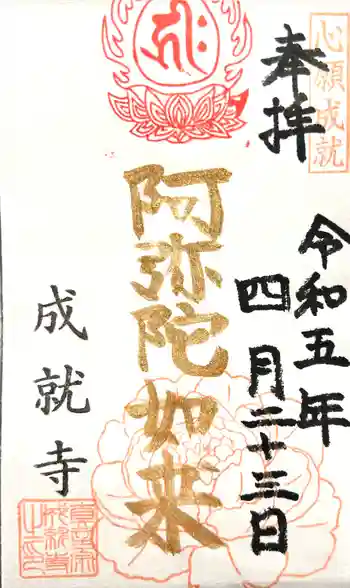 心願成就
奉拝
令和五年
四月二十三日
阿弥陀如来
成就寺